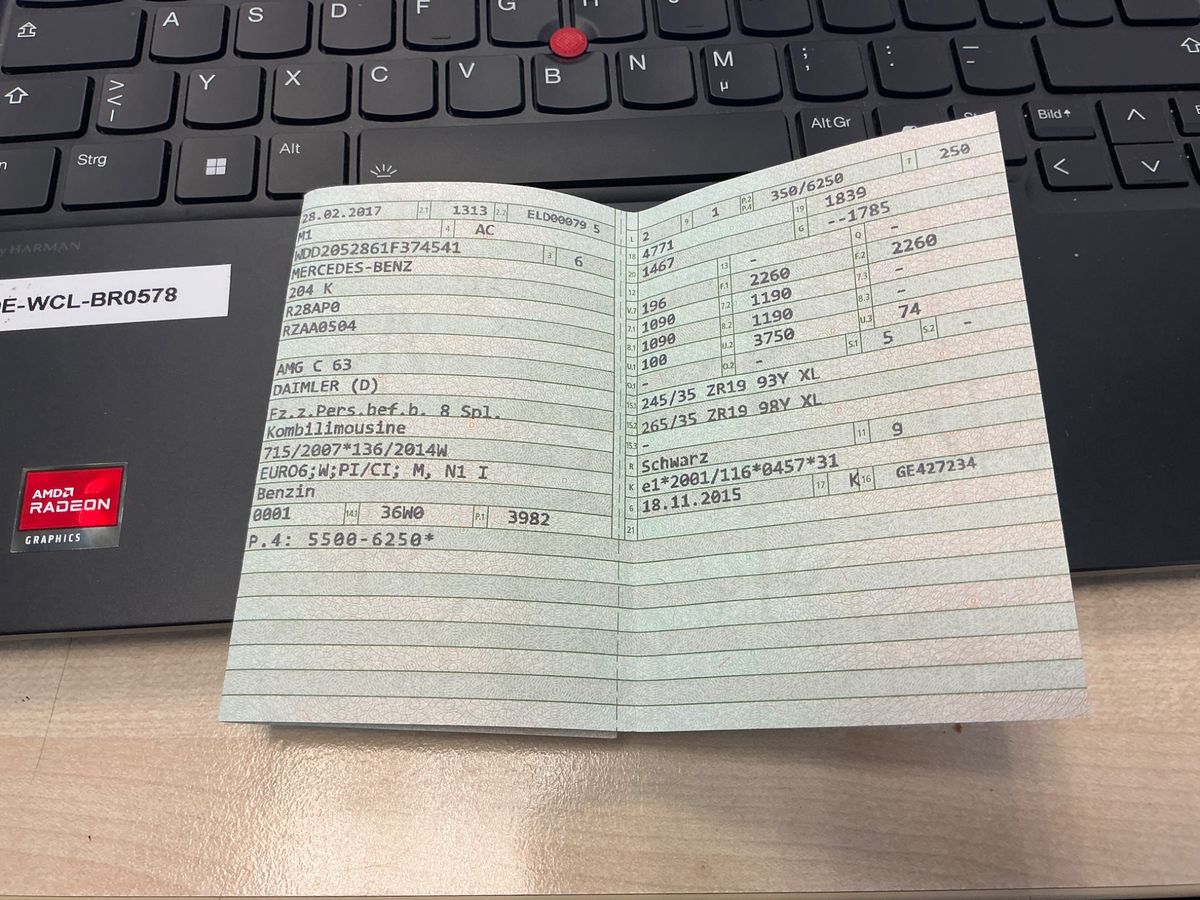 A S D F G H J
Y X C V B N M ; : –
> < | µ , . -
Strg Alt Alt Gr Bild
HARMAN
DE-WCL-BR0578
AMD
RADEON
GRAPHICS
28.02.2017 2.1 1313 2.2 ELD00079 5
M1 4 AC
WDD2052861F374541 3 6
MERCEDES-BENZ
204 K
R28AP0
RZAA0504
AMG C 63
DAIMLER (D)
Fz.z.Pers.bef.b. 8 Spl.
Kombilimousine
715/2007*136/2014W
EURO6;W;PI/CI; M, N1 I
Benzin
0001 14.1 36W0 P.1 3982
P.4: 5500-6250*
L 2 9 1 P.2 P.4 350/6250 T 250
18 4771 19 1839
20 1467 G --1785
12 13 - Q -
V.7 196 F.1 2260 F.2 2260
7.1 1090 7.2 1190 7.3 -
8.1 1090 8.2 1190 8.3 -
U.1 100 U.2 3750 U.3 74
O.1 - O.2 - S.1 5 S.2 -
15.1 245/35 ZR19 93Y XL
15.2 265/35 ZR19 98Y XL
15.3 -
R Schwarz 11 9
K e1*2001/116*0457*31
6 18.11.2015 17 K 16 GE427234
21